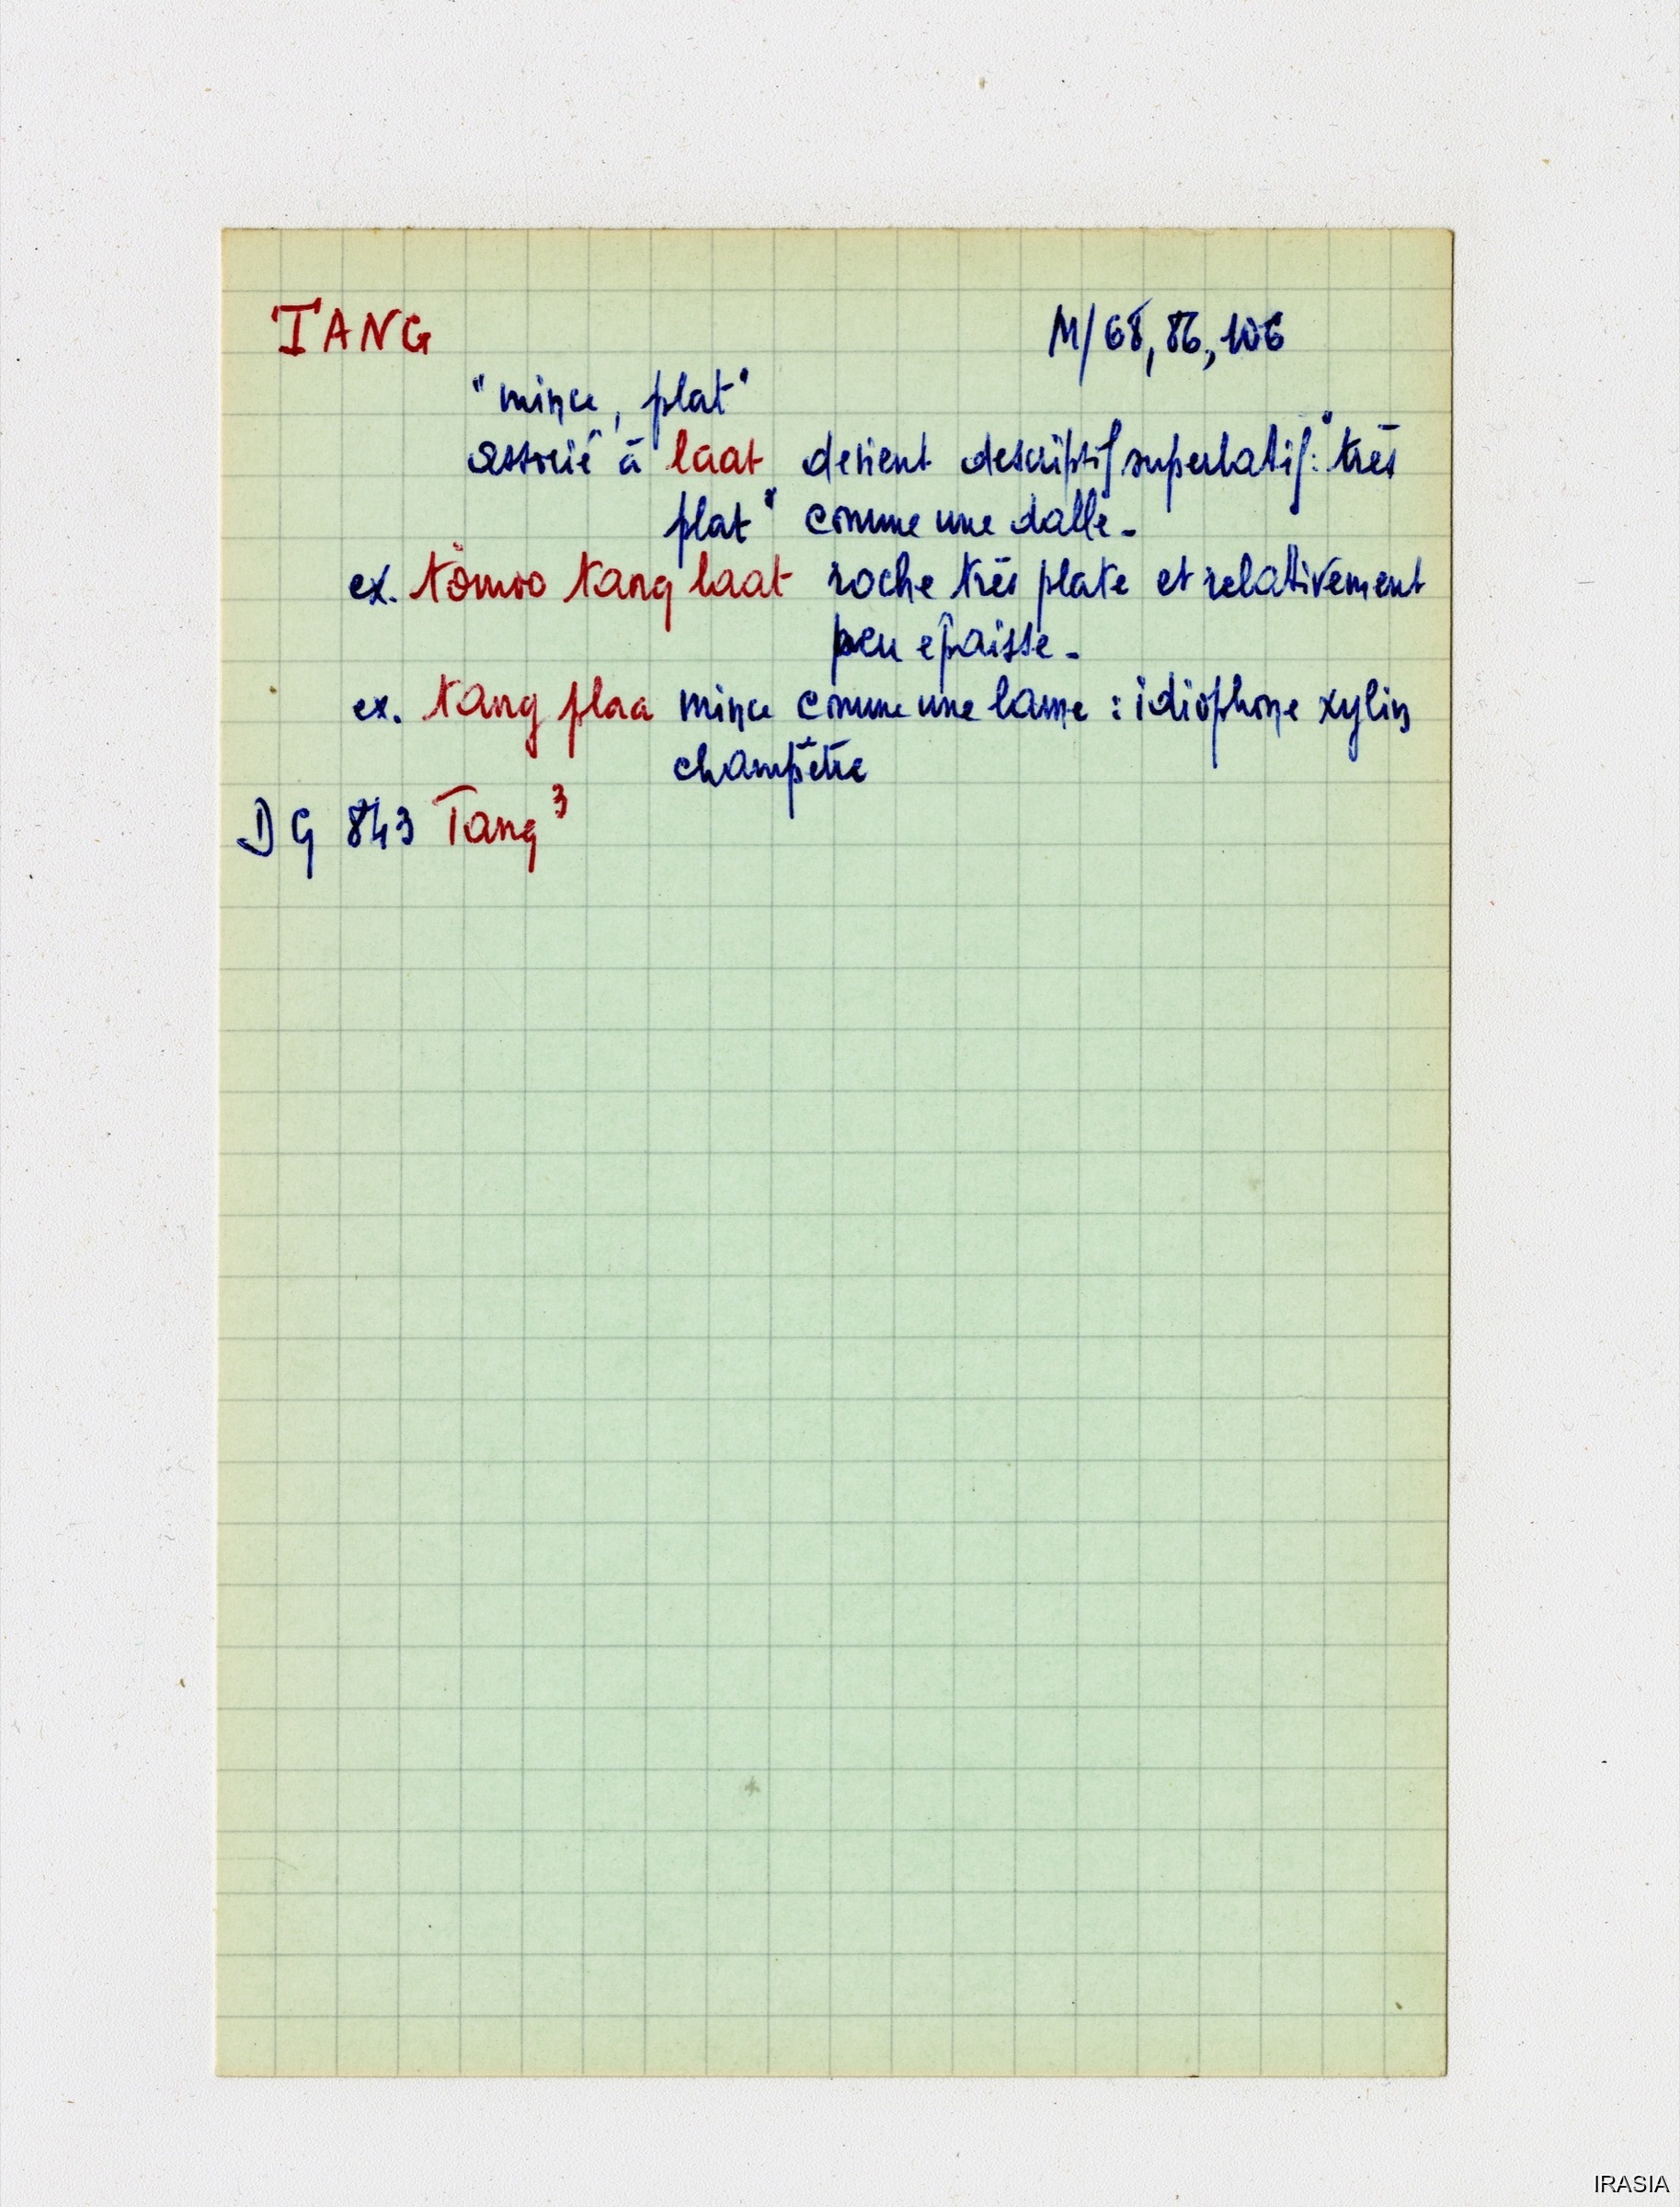 TANG M/68, 86, 106
"mince, plat"
associé à laat devient descriptif superlatif: "très
plat" comme une dalle -
ex. tömoo tang laat roche très plate et relativement
peu épaisse -
ex. tang plaa mince comme une lame : idiophone xylin
champêtre
DG 843 Tang³
IRASIA